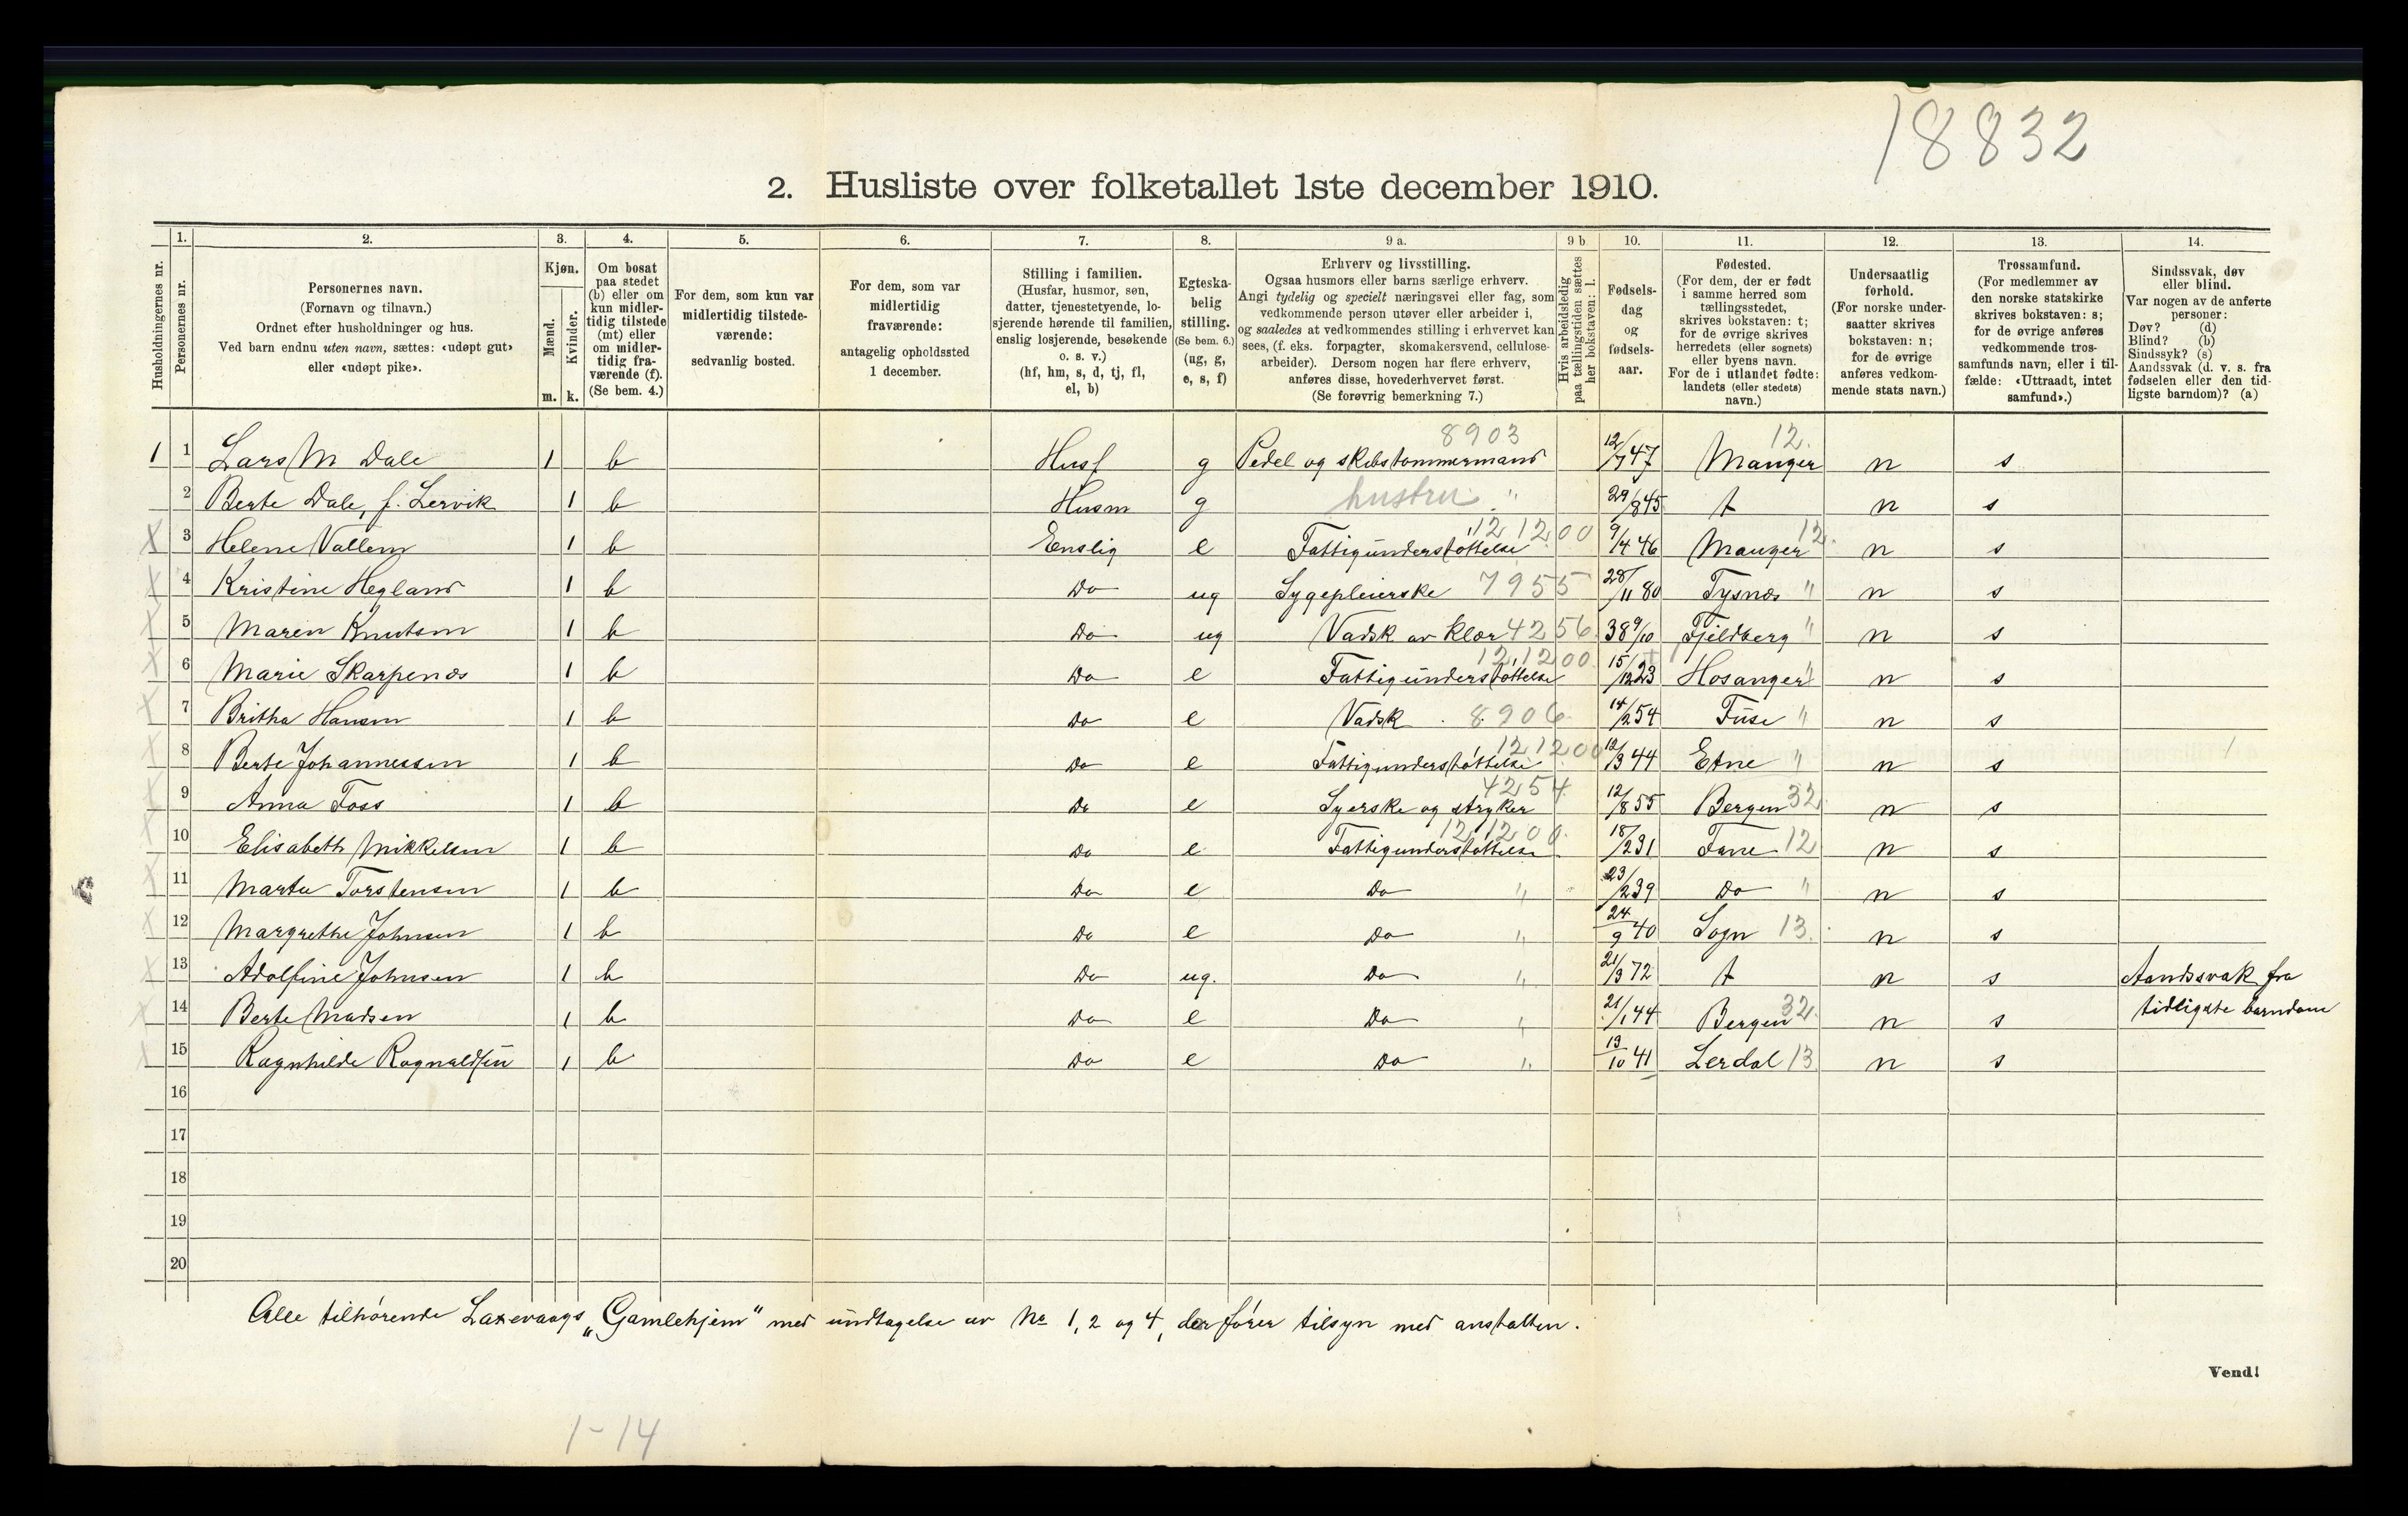 18832
2. Husliste over folketallet 1ste december 1910.
Husholdningernes nr.
1. Personernes nr.
2. Personernes navn.
(Fornavn og tilnavn.)
Ordnet efter husholdninger og hus.
Ved barn endnu uten navn, sættes: «udøpt gut»
eller «udøpt pike».
3. Kjøn.
Mænd. m.
Kvinder. k.
4. Om bosat
paa stedet
(b) eller om
kun midler-
tidig tilstede
(mt) eller
om midler-
tidig fra-
værende (f).
(Se bem. 4.)
5. For dem, som kun var
midlertidig tilstede-
værende:
sedvanlig bosted.
6. For dem, som var
midlertidig
fraværende:
antagelig opholdssted
1 december.
7. Stilling i familien.
(Husfar, husmor, søn,
datter, tjenestetyende, lo-
sjerende hørende til familien,
enslig losjerende, besøkende
o. s. v.)
(hf, hm, s, d, tj, fl,
el, b)
8. Egteska-
belig
stilling.
(Se bem. 6.)
(ug, g,
e, s, f)
9 a. Erhverv og livsstilling.
Ogsaa husmors eller barns særlige erhverv.
Angi tydelig og specielt næringsvei eller fag, som
vedkommende person utøver eller arbeider i,
og saaledes at vedkommendes stilling i erhvervet kan
sees, (f. eks. forpagter, skomakersvend, cellulose-
arbeider). Dersom nogen har flere erhverv,
anføres disse, hovederhvervet først.
(Se forøvrig bemerkning 7.)
9 b Hvis arbeidsledig
paa tællingstiden sættes
her bokstaven: l.
10. Fødsels-
dag
og
fødsels-
aar.
11. Fødested.
(For dem, der er født
i samme herred som
tællingsstedet,
skrives bokstaven: t;
for de øvrige skrives
herredets (eller sognets)
eller byens navn.
For de i utlandet fødte:
landets (eller stedets)
navn.)
12. Undersaatlig
forhold.
(For norske under-
saatter skrives
bokstaven: n;
for de øvrige
anføres vedkom-
mende stats navn.)
13. Trossamfund.
(For medlemmer av
den norske statskirke
skrives bokstaven: s;
for de øvrige anføres
vedkommende tros-
samfunds navn, eller i til-
fælde: «Uttraadt, intet
samfund».)
14. Sindssvak, døv
eller blind.
Var nogen av de anførte
personer:
Døv? (d)
Blind? (b)
Sindssyk? (s)
Aandssvak (d. v. s. fra
fødselen eller den tid-
ligste barndom)? (a)
1 1 Lars M Dale 1 b Husf g Pedel og skibstømmermand 8903 12/7 47 Manger 12. n s
2 Berte Dale, f. Lervik 1 b Husm g hustru " 29/8 45 t n s
X 3 Helene Vallem 1 b Enslig e Fattigunderstøttelse 121200 9/4 46 Manger 12. n s
X 4 Kristine Hegland 1 b Do ug Sygepleierske 7955 28/11 80 Tysnæs " n s
X 5 Maren Knutsen 1 b Do ug Vadsk av klær 4256 38 9/10 Fjeldberg " n s
X 6 Marie Skarpenæs 1 b Do e Fattigunderstøttelse 121200 15/12 23 Hosanger " n s
X 7 Britha Hansen 1 b Do e Vadsk 8906 14/2 54 Fuse " n s
X 8 Berte Johannessen 1 b Do e Fattigunderstøttelse 121200 12/3 44 Etne " n s
X 9 Anna Foss 1 b Do e Syerske og stryker 4254 12/8 55 Bergen 32 n s
X 10 Elisabeth Mikkelsen 1 b Do e Fattigunderstøttelse 121200 18/2 31 Fane 12 n s
X 11 Marta Torstensen 1 b Do e Do " 23/2 39 Do " n s
X 12 Margrethe Johnsen 1 b Do e Do " 24/9 40 Sogn 13. n s
X 13 Adolfine Johnsen 1 b Do ug. Do " 21/3 72 t n s Aandssvak fra
tidligste barndom
X 14 Berte Madsen 1 b Do e Do " 21/1 44 Bergen 32. n s
X 15 Ragnhilde Ragnaldsen 1 b Do e Do " 19/10 41 Lerdal 13 n s
16
17
18
19
20
Alle tilhørende Laxevaags „Gamlehjem" med undtagelse av No 1, 2 og 4, der fører tilsyn med anstalten.
Vend!
1-14